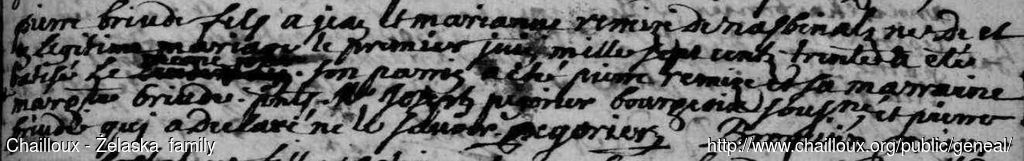 pierre briude fils a jean et marianne remize de nasbinals né de et
legitime mariage le premier juin mille sept cents trente a eté
batisé le son parrin a été pierre remize et sa marraine
marg^te briude. pnts. M^e Joseph pegorier bourgeois sousne, et pierre
briude qui a declaré ne le savoir pegorier
Chailloux - Żelaska family
http://www.chailloux.org/public/geneal/